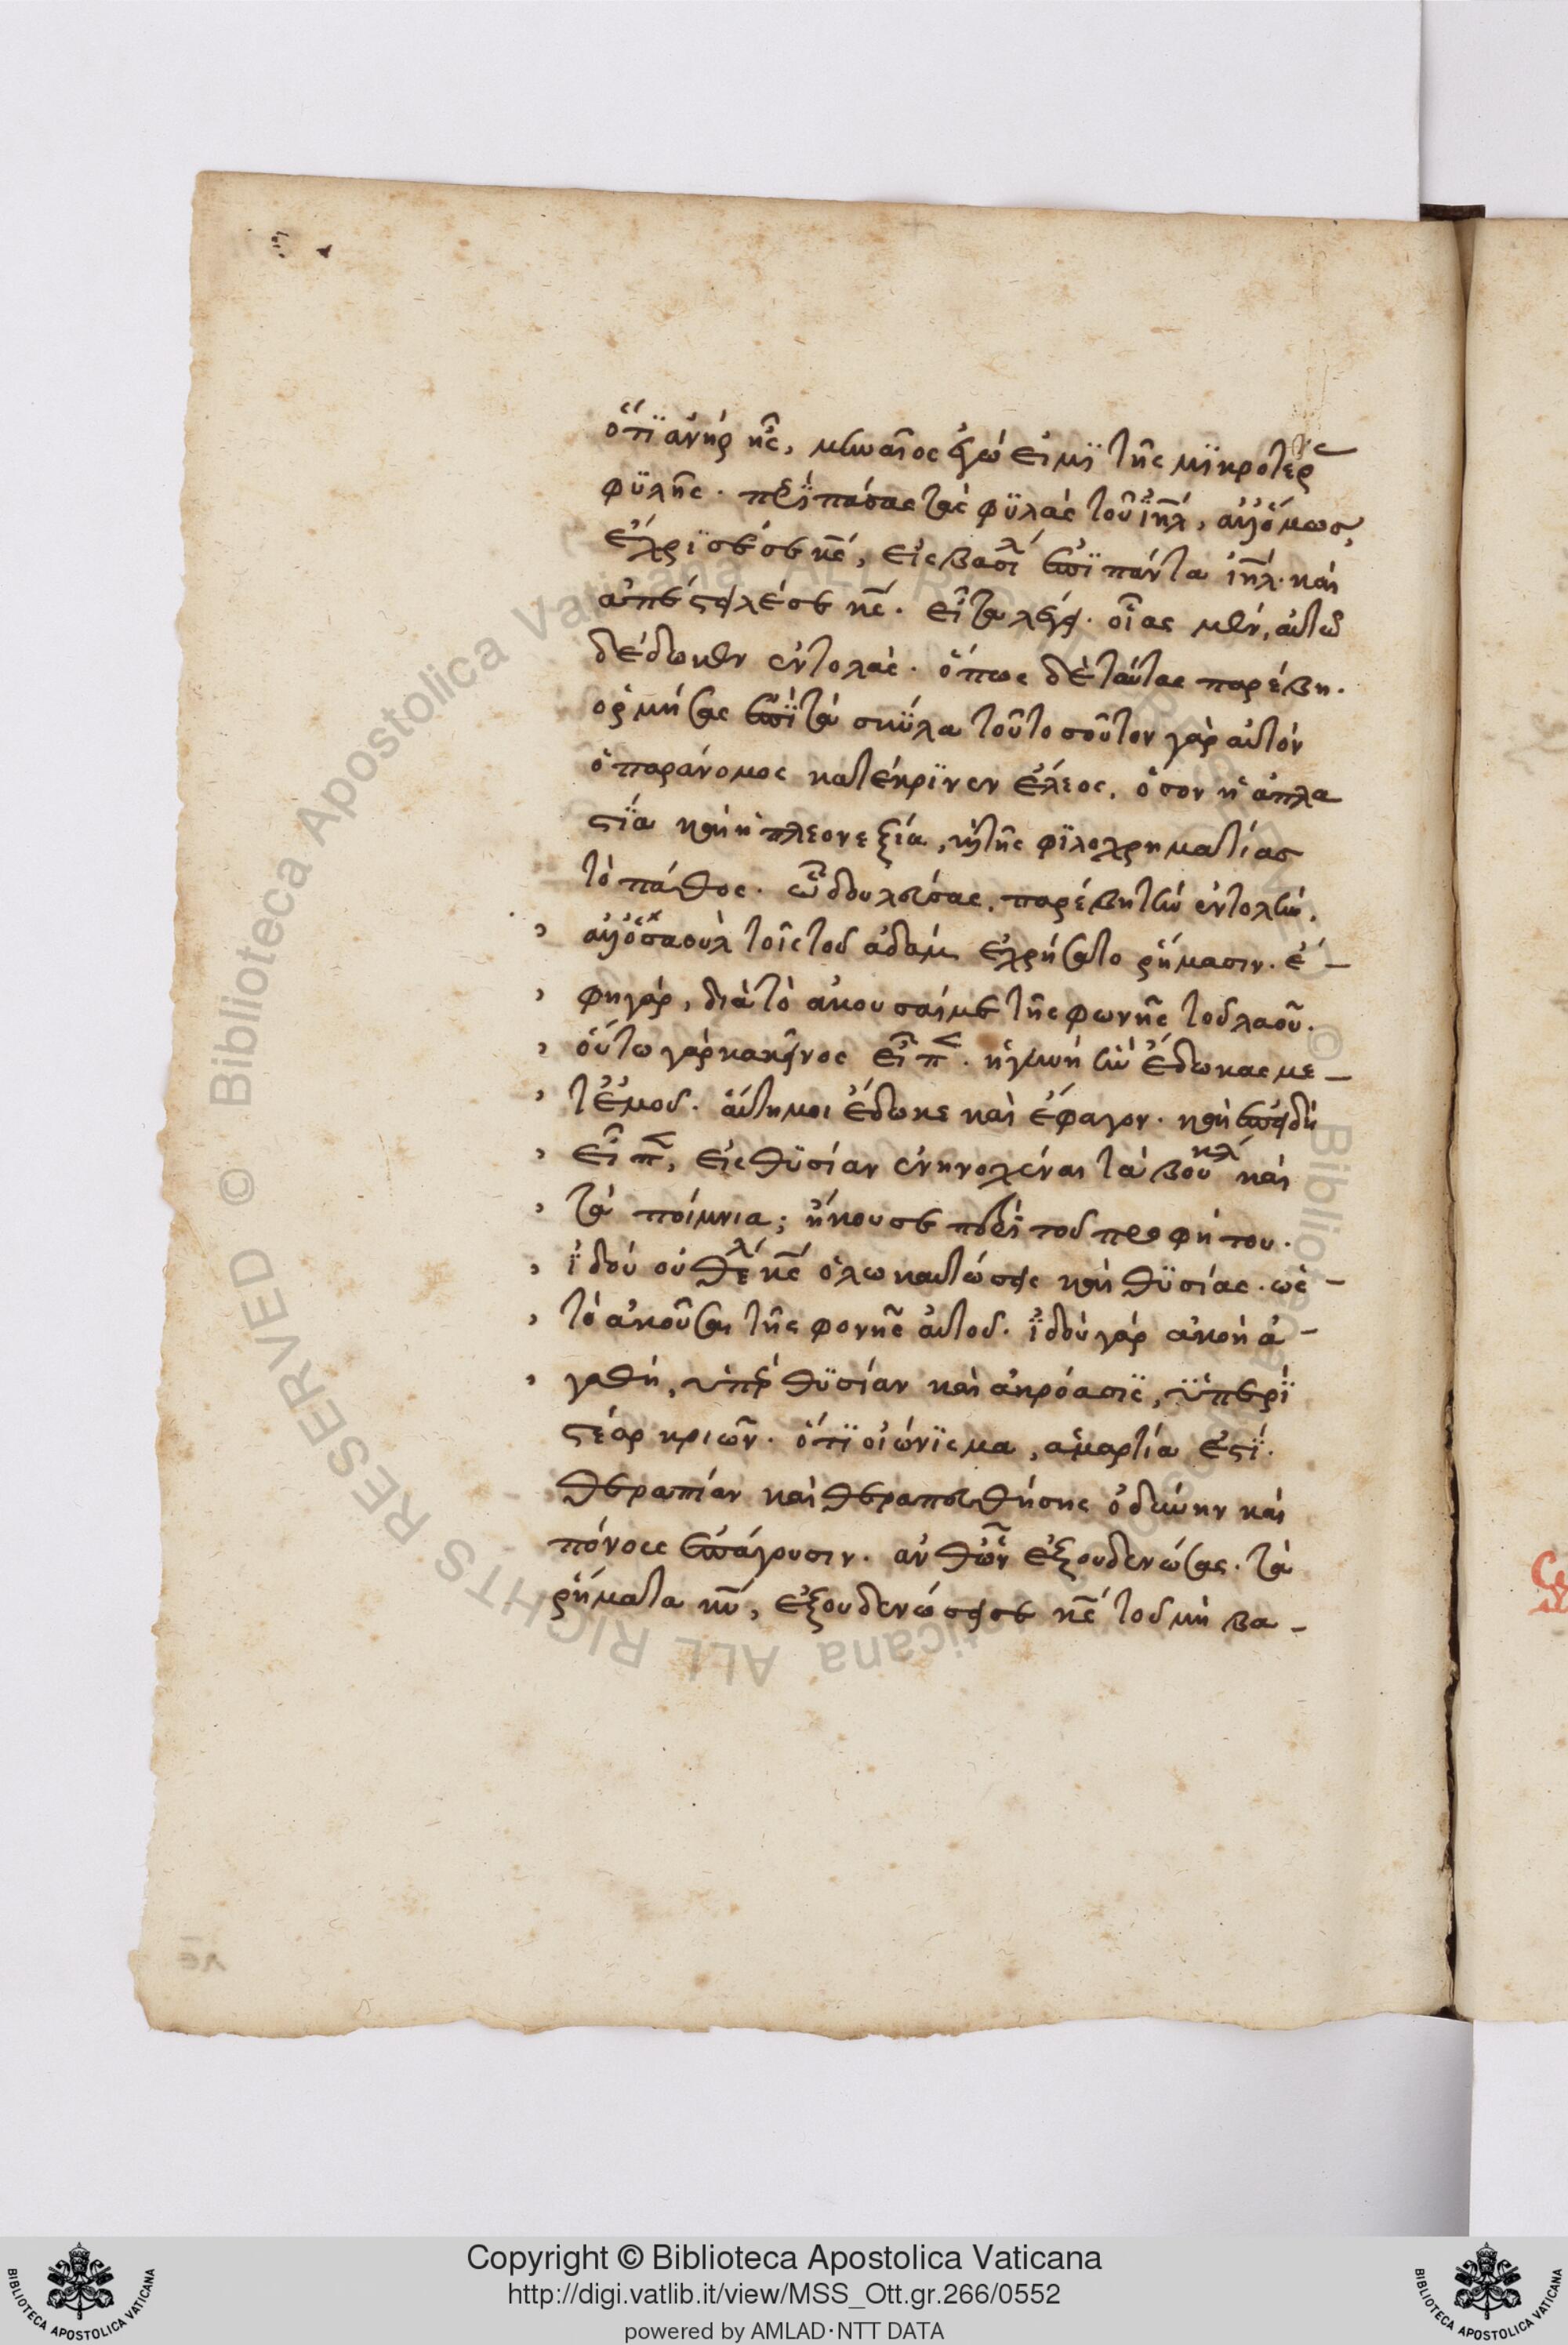 ὅτι ἀνὴρ ἦς, μηναῖος ἐγώ εἰμϊ τῆς μϊκροτέρς
φϋλῆς. περϊ πάσας τὰς φϋλὰς τοῦ ἰηλ, ἀλλ᾽ ὅμως,
ἔχρϊσέ σε κς, εἰς βασϊλ ἐπϊ πάντα ἰηλ. καὶ
ἀπέστειλέ σε κς. εἶτα λέγει. οἵας μὲν, αὐτῶ
δέδωκεν ἐντολὰς. ὅπως δὲ ταύτας παρέβη.
ὁρμήσας ἐπϊ τὰ σκϋλα τοῦτο σοῦτον γὰρ αὐτὸν
ὁ παράνομος κατέκρϊνεν ἔλεος. ὅσον ἡ ἀπλα
στϊα καὶ ἡ πλεονεξία, καὶ τῆς φϊλοχρηματίας
τὸ πάθος. ὧ δουλεύσας, παρέβη τὴν ἐντολὴν.
ἀλλ᾽ ὁ σαοὺλ τοῖς τοῦ ἀδὰμ ἐχρήσατο ῥήμασιν. ἔ-
φη γὰρ, διὰ τὸ ἀκουσαί με τῆς φωνῆς τοῦ λαοῦ.
οὕτω γὰρ κακεῖνος εἶπ. ἡ γυνὴ ἣν ἔδωκας με-
τ᾽ ἐμοῦ. αὕτη μοι ἔδωκε καὶ ἔφαγον. καὶ ἐπειδὴ
εἶπ, εἰς θϋσίαν ἐνηνοχέναι τὰ βουκλ καὶ
τὰ ποίμνια; ἤκουσε περϊ τοῦ προφήτου.
ἰδοὺ οὐ θέλ κς ὁλωκαυτώσεις καὶ θϋσίας. ὡς-
τὸ ἀκοῦσαι τῆς φονῆς αὐτοῦ. ἰδοὺ γὰρ ἀκοὴ ἀ-
γαθὴ, ὑπὲρ θϋσίαν καὶ ἀκρόασϊς, ϋπερϊ
στέαρ κριῶν. ὅτϊ οἰώνϊσμα, ἁμαρτία ἐστϊ.
θεραπίαν καὶ θεραπευθήσης ὀδύνην καὶ
πόνοις ἐπάγουσιν. ἀνθ᾽ ὧν ἐξουδενώσας. τὰ
ῥήματα κυ, ἐξουδενώσει σε κς τοῦ μὴ βα-
Copyright © Biblioteca Apostolica Vaticana
http://digi.vatlib.it/view/MSS_Ott.gr.266/0552
powered by AMLAD·NTT DATA